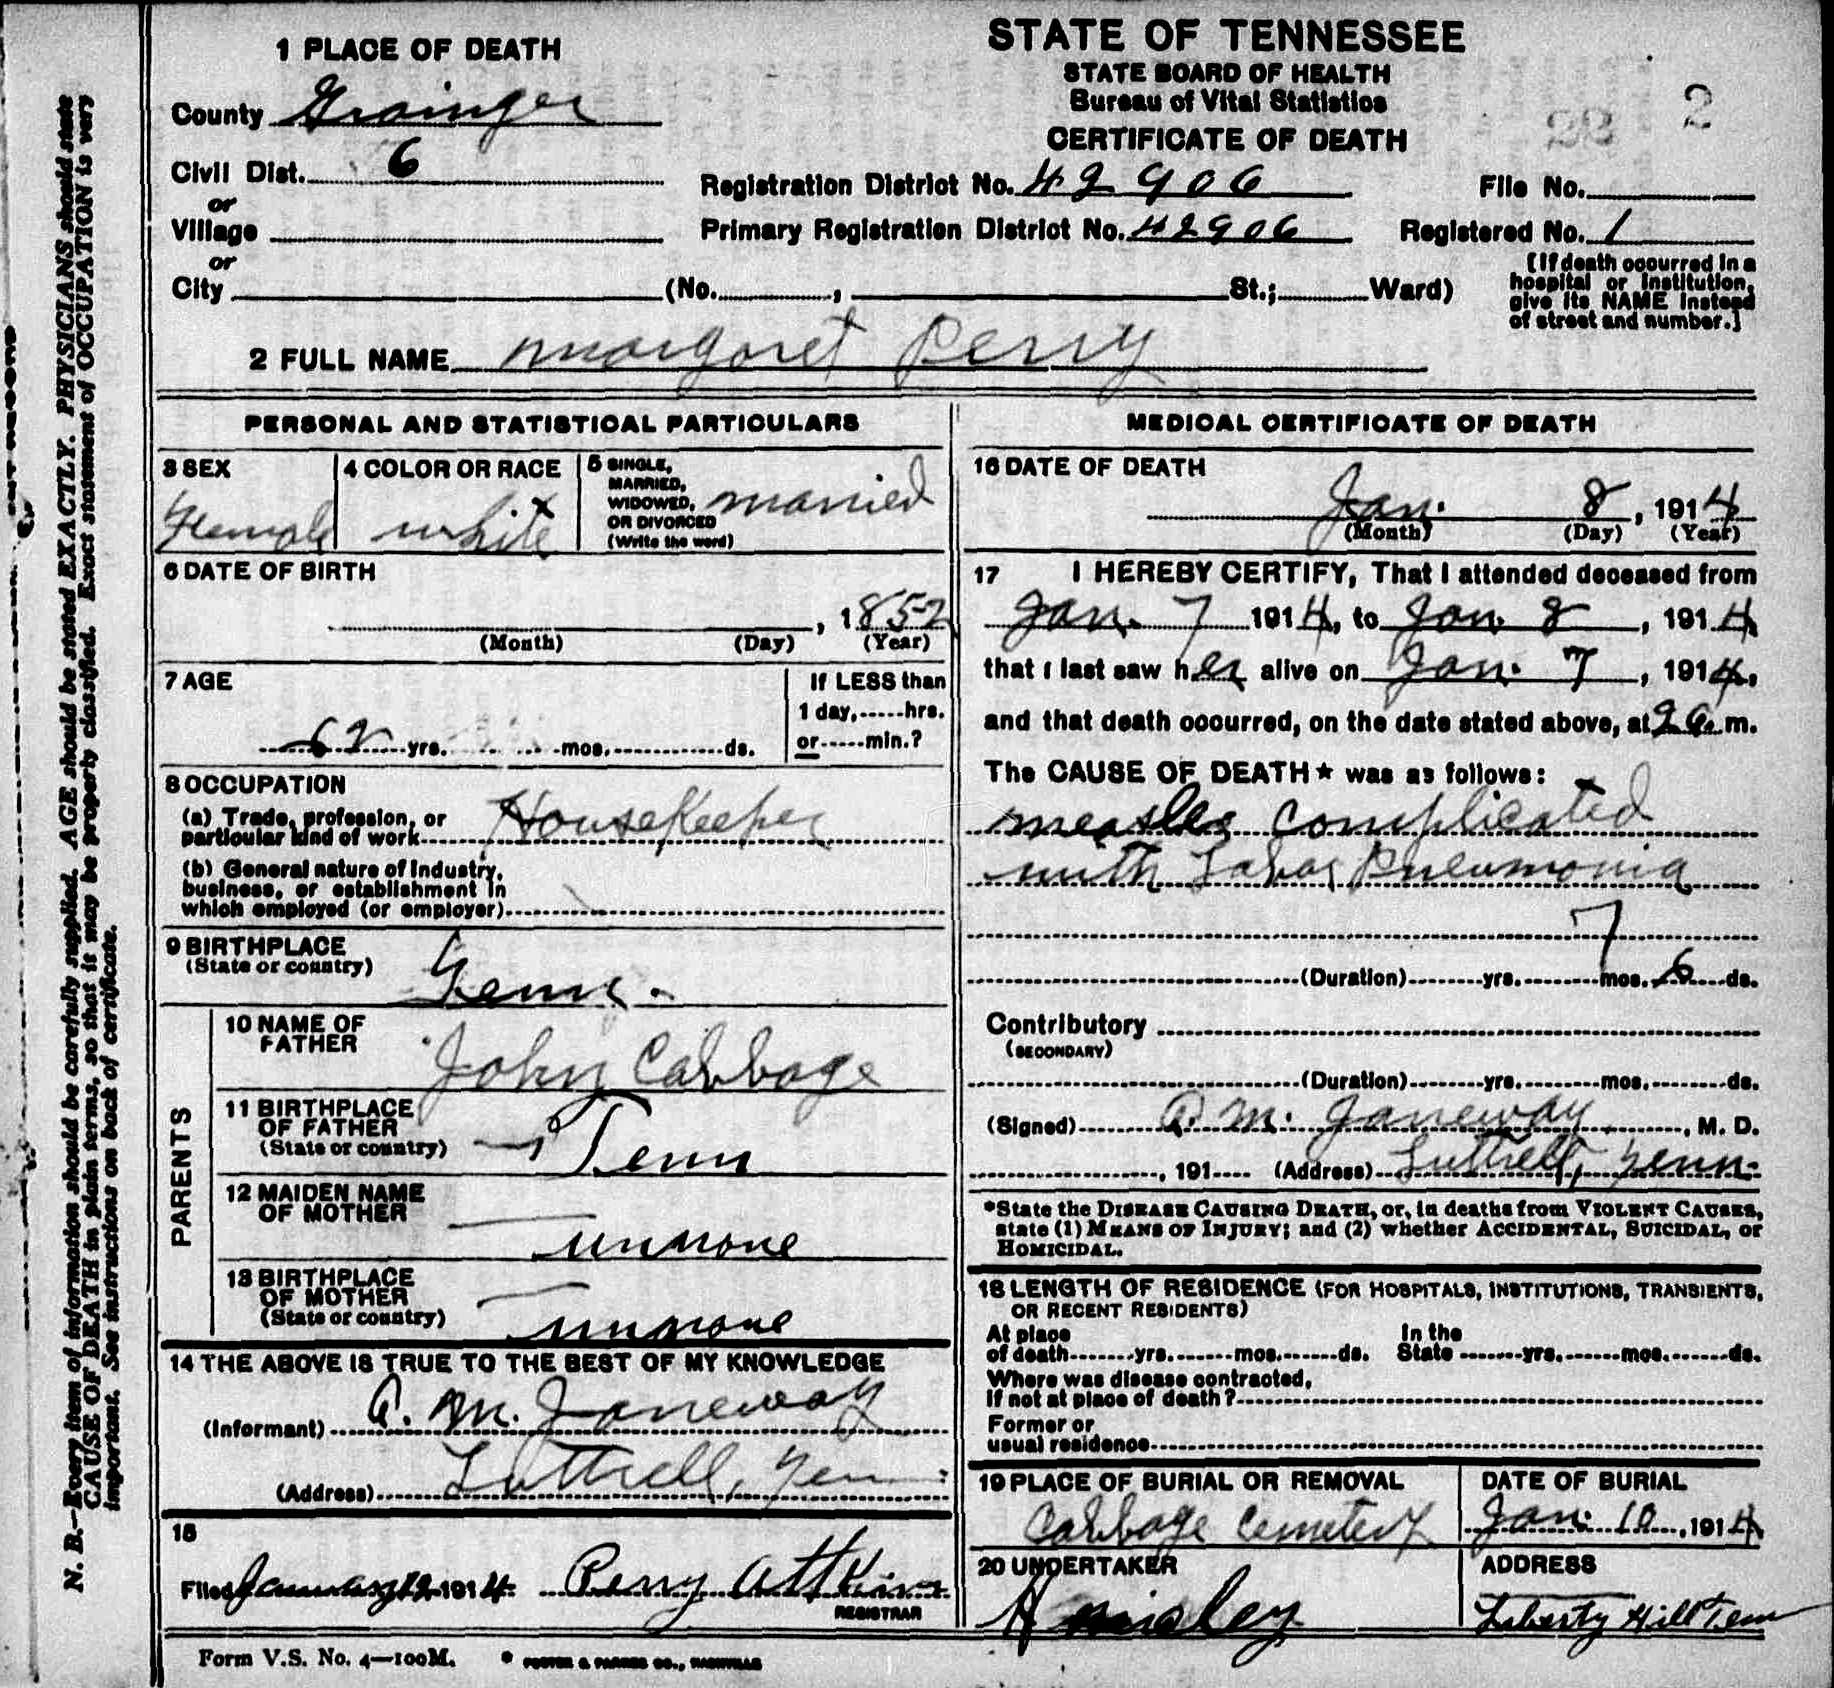 1 PLACE OF DEATH
County Grainger
Civil Dist. 6
or
Village
or
City (No. , St.; Ward)
STATE OF TENNESSEE
STATE BOARD OF HEALTH
Bureau of Vital Statistics
CERTIFICATE OF DEATH
2
Registration District No. 42906 File No.
Primary Registration District No. 42906 Registered No. 1
[If death occurred in a
hospital or institution,
give its NAME instead
of street and number.]
2 FULL NAME Margaret Perry
PERSONAL AND STATISTICAL PARTICULARS
3 SEX
Female
4 COLOR OR RACE
white x
5 SINGLE,
MARRIED,
WIDOWED,
OR DIVORCED
(Write the word)
married
6 DATE OF BIRTH
, 1852
(Month) (Day) (Year)
7 AGE
62 yrs. mos. ds.
If LESS than
1 day, hrs.
or min.?
8 OCCUPATION
(a) Trade, profession, or
particular kind of work Housekeeper
(b) General nature of industry,
business, or establishment in
which employed (or employer)
9 BIRTHPLACE
(State or country) Tenn.
PARENTS
10 NAME OF
FATHER John Cabbage
11 BIRTHPLACE
OF FATHER
(State or country) Tenn
12 MAIDEN NAME
OF MOTHER unnone
13 BIRTHPLACE
OF MOTHER
(State or country) unnone
14 THE ABOVE IS TRUE TO THE BEST OF MY KNOWLEDGE
(Informant) A. M. Janeway
(Address) Luttrell, Tenn
15
Filed January 12 1914 Perry Attkins
REGISTRAR
MEDICAL CERTIFICATE OF DEATH
16 DATE OF DEATH
Jan. 8, 1914
(Month) (Day) (Year)
17 I HEREBY CERTIFY, That I attended deceased from
Jan. 7 1914, to Jan. 8, 1914,
that I last saw her alive on Jan. 7, 1914,
and that death occurred, on the date stated above, at 2 a. m.
The CAUSE OF DEATH* was as follows:
measles complicated
with Lobar Pneumonia
7
(Duration) yrs. mos. 6 ds.
Contributory
(SECONDARY)
(Duration) yrs. mos. ds.
(Signed) A. M. Janeway, M. D.
, 191 (Address) Luttrell, Tenn.
*State the DISEASE CAUSING DEATH, or, in deaths from VIOLENT CAUSES,
state (1) MEANS OF INJURY; and (2) whether ACCIDENTAL, SUICIDAL, or
HOMICIDAL.
18 LENGTH OF RESIDENCE (FOR HOSPITALS, INSTITUTIONS, TRANSIENTS,
OR RECENT RESIDENTS)
At place
of death yrs. mos. ds.
In the
State yrs. mos. ds.
Where was disease contracted,
if not at place of death?
Former or
usual residence
19 PLACE OF BURIAL OR REMOVAL
Cabbage Cemetery
DATE OF BURIAL
Jan. 10, 1914
20 UNDERTAKER
ADDRESS
Liberty Hill Tenn
Form V.S. No. 4—100M. FOSTER & PARKES CO., NASHVILLE
N. B.—Every item of information should be carefully supplied. AGE should be stated EXACTLY. PHYSICIANS should state
CAUSE OF DEATH in plain terms, so that it may be properly classified. Exact statement of OCCUPATION is very
important. See instructions on back of certificate.